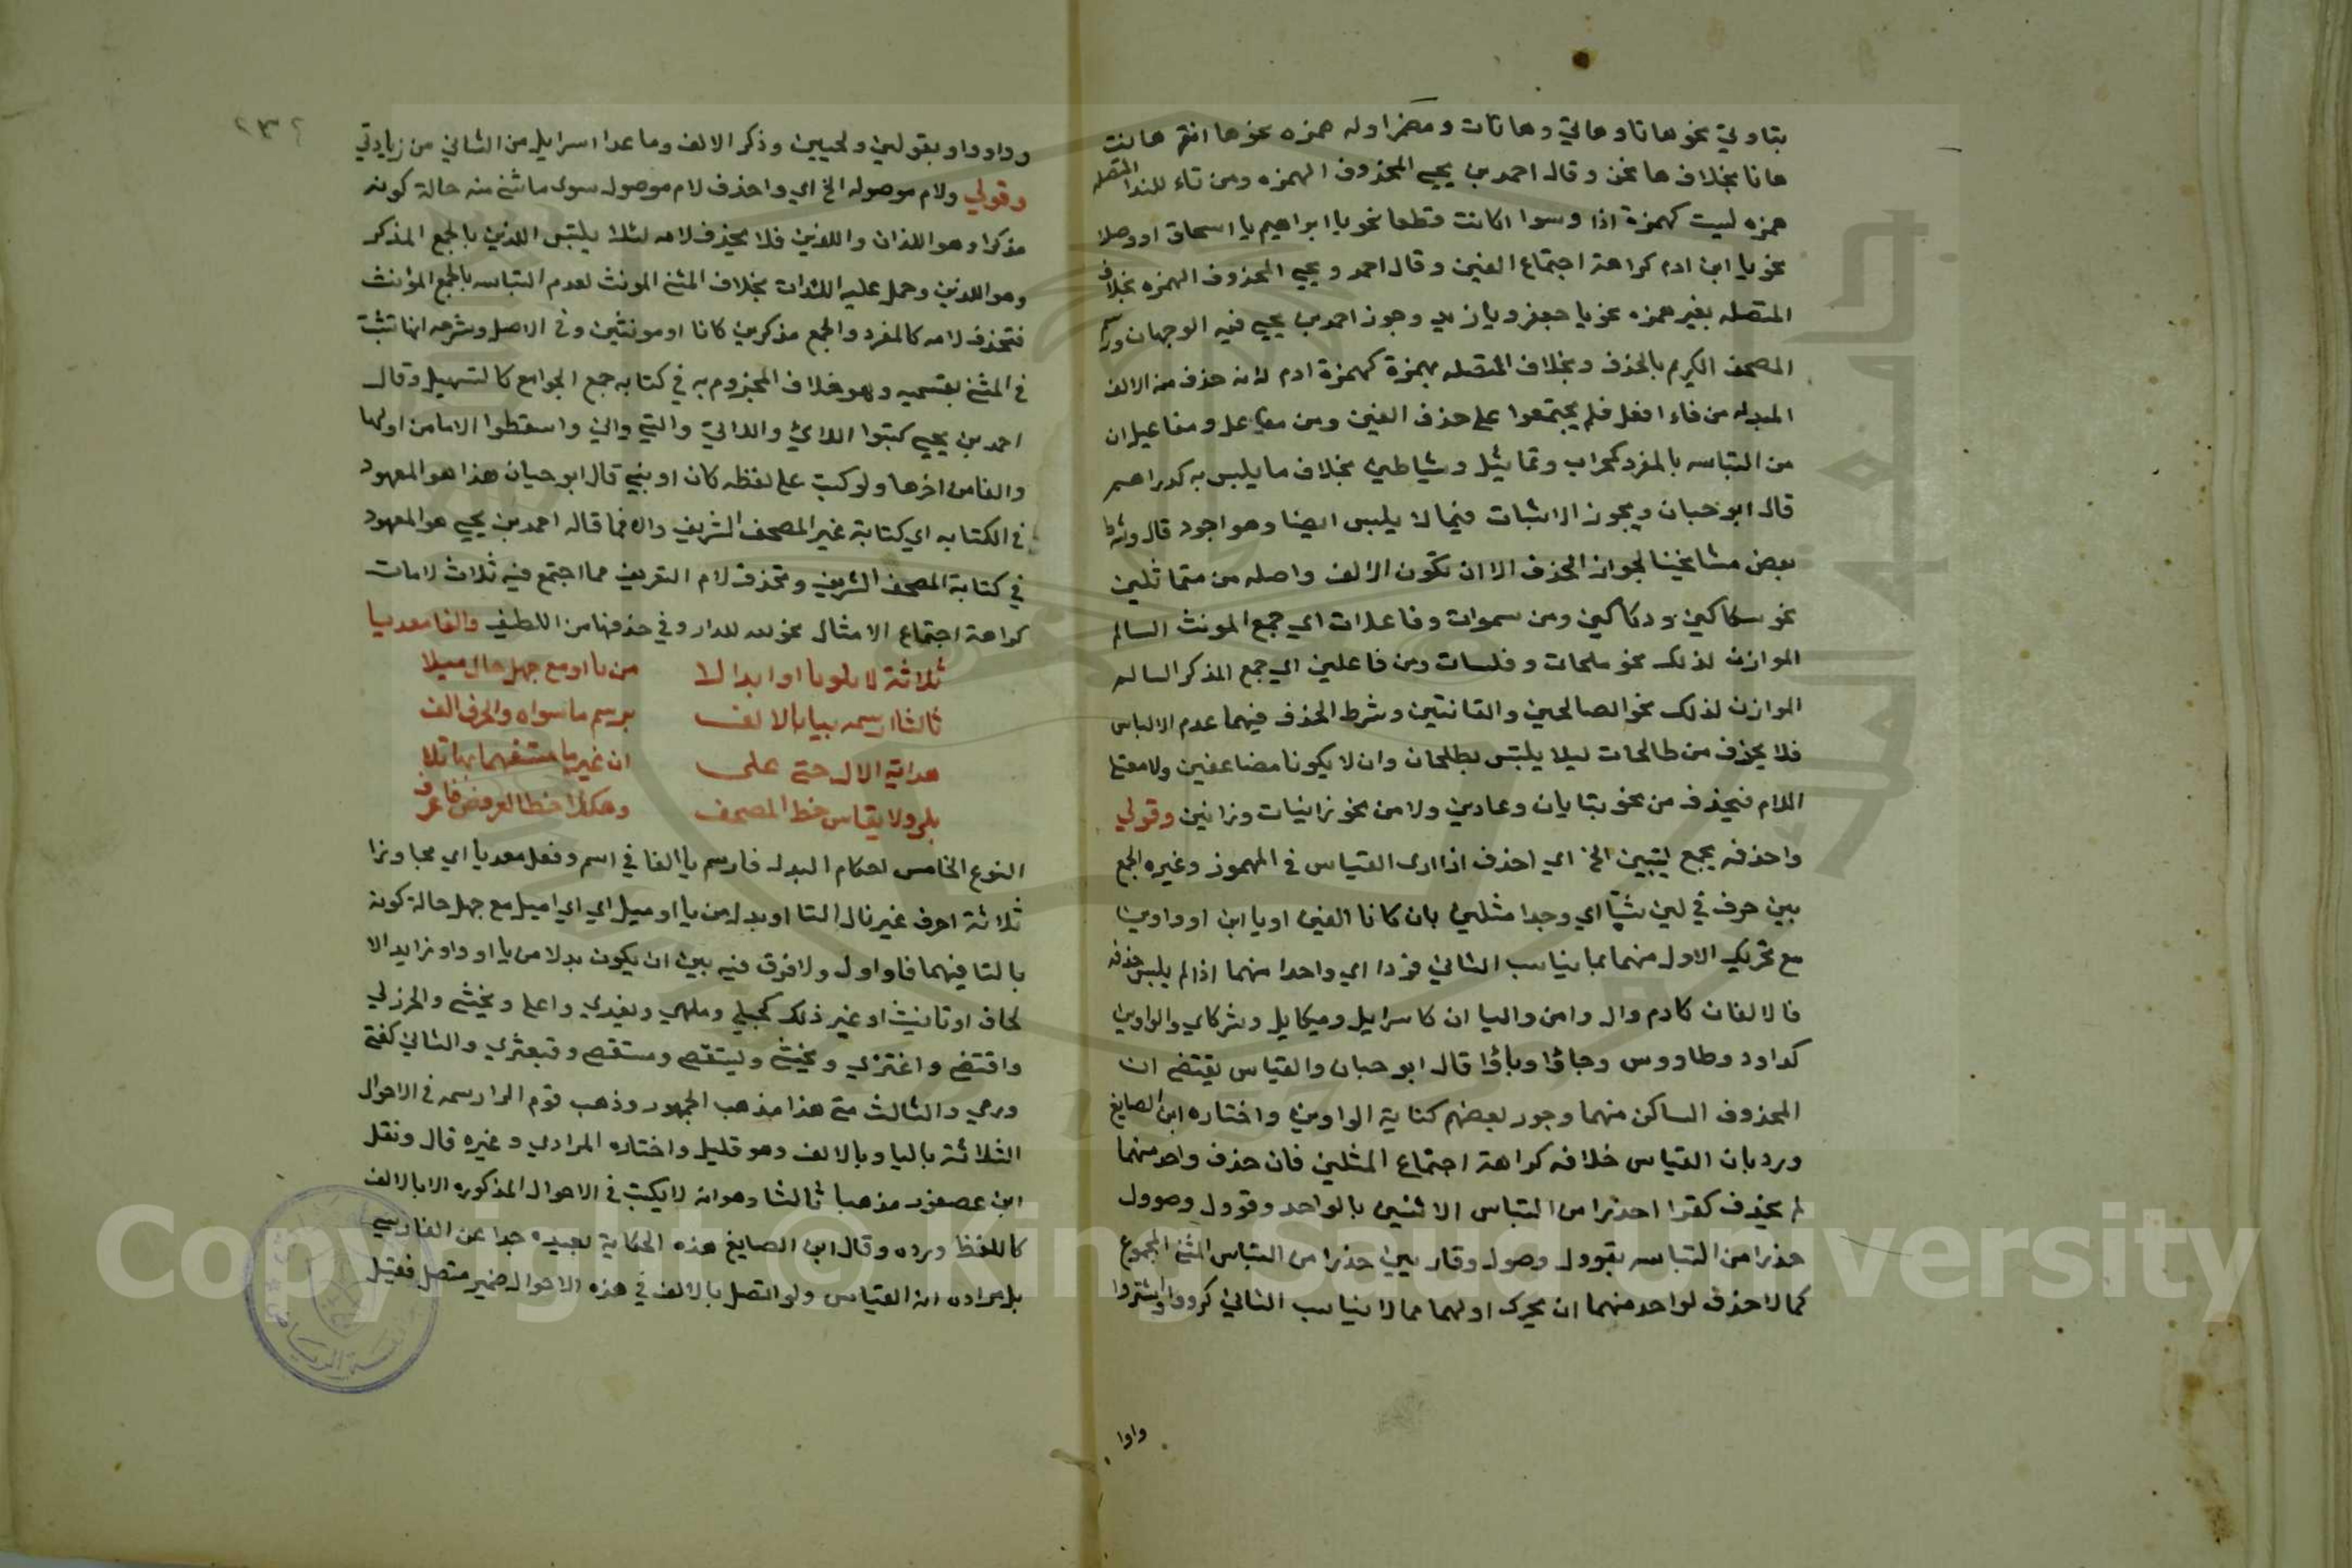 بتا وتي نحو هاتا وهاتي وهاتان ومضمرا وله همزه نحو ها انتم ها نت
ها نا بخلاف ها نحن وقال احمد بن يحيى المحذوف الهمزه ومن ياء للندا المتصله
همزه ليست كهمزة اذا وسوا اكانت قطعا نحو يا ابراهيم يا اسحاق او وصلا
نحو يا ابن ادم كراهة اجتماع الفين وقال احمد ويحيى المحذوف الهمزه بخلاف
المتصله بغير همزه نحو يا جعفر ويا زيد وجوز احمد بن يحيى فيه الوجهان ورسم
المصحف الكريم بالحذف وبخلاف المتصله بهمزة كهمزة ادم لانه حذف منه الالف
المبدله من فاء افعل فلم يجتمعوا على حذف الفين ومن مفاعل ومفاعيل ان
من التباسه بالمفرد كمحراب وتماثيل وشياطين بخلاف ما يلبس به كدراهم
قال ابو حيان ويجوز الاثبات فيما لا يلبس ايضا وهو اجود قال وشرط
بعض مشائخنا لجواز الحذف الا ان تكون الالف واصله من متماثلين
نحو سكاكين ودكاكين ومن سموات وفاعلات اي جمع المونث السالم
الموازن لذلك نحو ملحات وفلسات ومن فاعلين اي جمع المذكر السالم
الموازن لذلك نحو الصالحين والقانتين وشرط الحذف فيهما عدم الالباس
فلا يحذف من طالحات ليلا يلتبس بطلحات وان لا يكونا مضاعفين ولا معتل
اللام فيحذف من نحو بتايان وعادين ولا من نحو زانيات وزانين وقولي
واحذفه بجمع ليبين الخ اي احذف اذا ادى القياس في المهموز وغيره الجمع
بين حرف في لين شيئا اي وجدا مثلين بان كانا الفين او يا اين او واوين
مع تحريك الاول منهما بما يناسب الثاني فردا اي واحدا منهما اذا لم يلبس حذفه
فالالفان كادم وال وامن واليا ان كاسرايل وميكايل وشركاي والواوين
كداود وطاووس وجاؤا وباؤا قال ابو حيان والقياس يقتضي ان
المحذوف الساكن منهما وجوز بعضهم كتابة الواوين واختاره ابن الصايغ
ورد بان القياس خلافه كراهة اجتماع المثلين فان حذف واحد منهما
لم يحذف كقرا احذرا من التباس الاثنين بالواحد وقوول وصوول
حذرا من التباسه بقوول وصول وقاريين حذرا من التباس المثنى المجموع
كما لا حذف لواحد منهما ان يحرك اولهما مما لا يناسب الثاني كرووا واشتروا
واوا
٢٣٢
وداودا وبقولين ولحيين وذكر الالف وما عدا اسرايل من الثاني من زيادتي
وقولي ولام موصوله الخ اي واحذف لام موصول سوى ما ثني منه حالة كونه
مذكرا وهو اللذان واللذين فلا يحذف لامه لئلا يلتبس اللذين بالجمع المذكر
وهو اللذين وحمل عليه اللذان بخلاف المثنى المونث لعدم التباسه بالجمع المؤنث
فتحذف لامه كالمفرد والجمع مذكرين كانا او مونثين وفي الاصل وشرحه انها تثبت
في المثنى بقسميه وهو خلاف المجزوم به في كتابه جمع الجوامع كالتسهيل وقال
احمد بن يحيى كتبوا اللاي واللاتي والتي واني واسقطوا الاما من اولها
والفا من اخرها ولو كتب على لفظه كان او بني قال ابو حيان هذا هو المعهود
في الكتابه اي كتابة غير المصحف الشريف والا فما قاله احمد بن يحيى هو المعهود
في كتابة المصحف الشريف وتحذف لام التعريف مما اجتمع فيه ثلاث لامات
كراهة اجتماع الامثال نحو لله للدار وفي حذفها من اللطيف والفا معديا
ثلاثة لا يلويا او ابدالا من يا او مع جهل حال ميلا
ثالثا ارسمه بيا بالالف برسم ما سواه والحرف الف
هداته الال حتى على ان غير ما مستفهما بها تلا
بلى ولا يقاس خط المصحف وهكذا خط العروض فاعرف
النوع الخامس احكام البدل فارسم يا الفا في اسم وفعل معديا اي مجاوزا
ثلاثة احرف غير تال التا او بدل من يا او ميل اي اي اميل مع جهل حالة كونه
بالتا فيهما فاو اول ولا فرق فيه بين ان يكون بدلا من يا او واو زايد الا
لحاق او تانيث او غير ذلك كحبلى وملهى ويغدي واعلى ويخشى والحرزلي
واقتضى واغتزي ويخشى وليتقصى ومستقصى وقبعثرى والثاني كفتى
ورمى والثالث متى هذا مذهب الجمهور وذهب قوم الى ارسمه في الاحوال
الثلاثة باليا وبالالف وهو قليل واختاره المرادي وغيره قال ونقل
ابن عصفور مذهبا ثالثا وهو انه لا يكتب في الاحوال المذكوره الا بالالف
كاللفظ ورده وقال ابن الصايغ هذه الحكاية بعيده جدا عن الفارسي
بل مراده ان القياس ولو اتصل بالالف في هذه الاحوال ضمير متصل فقيل
Copyright © King Saud University